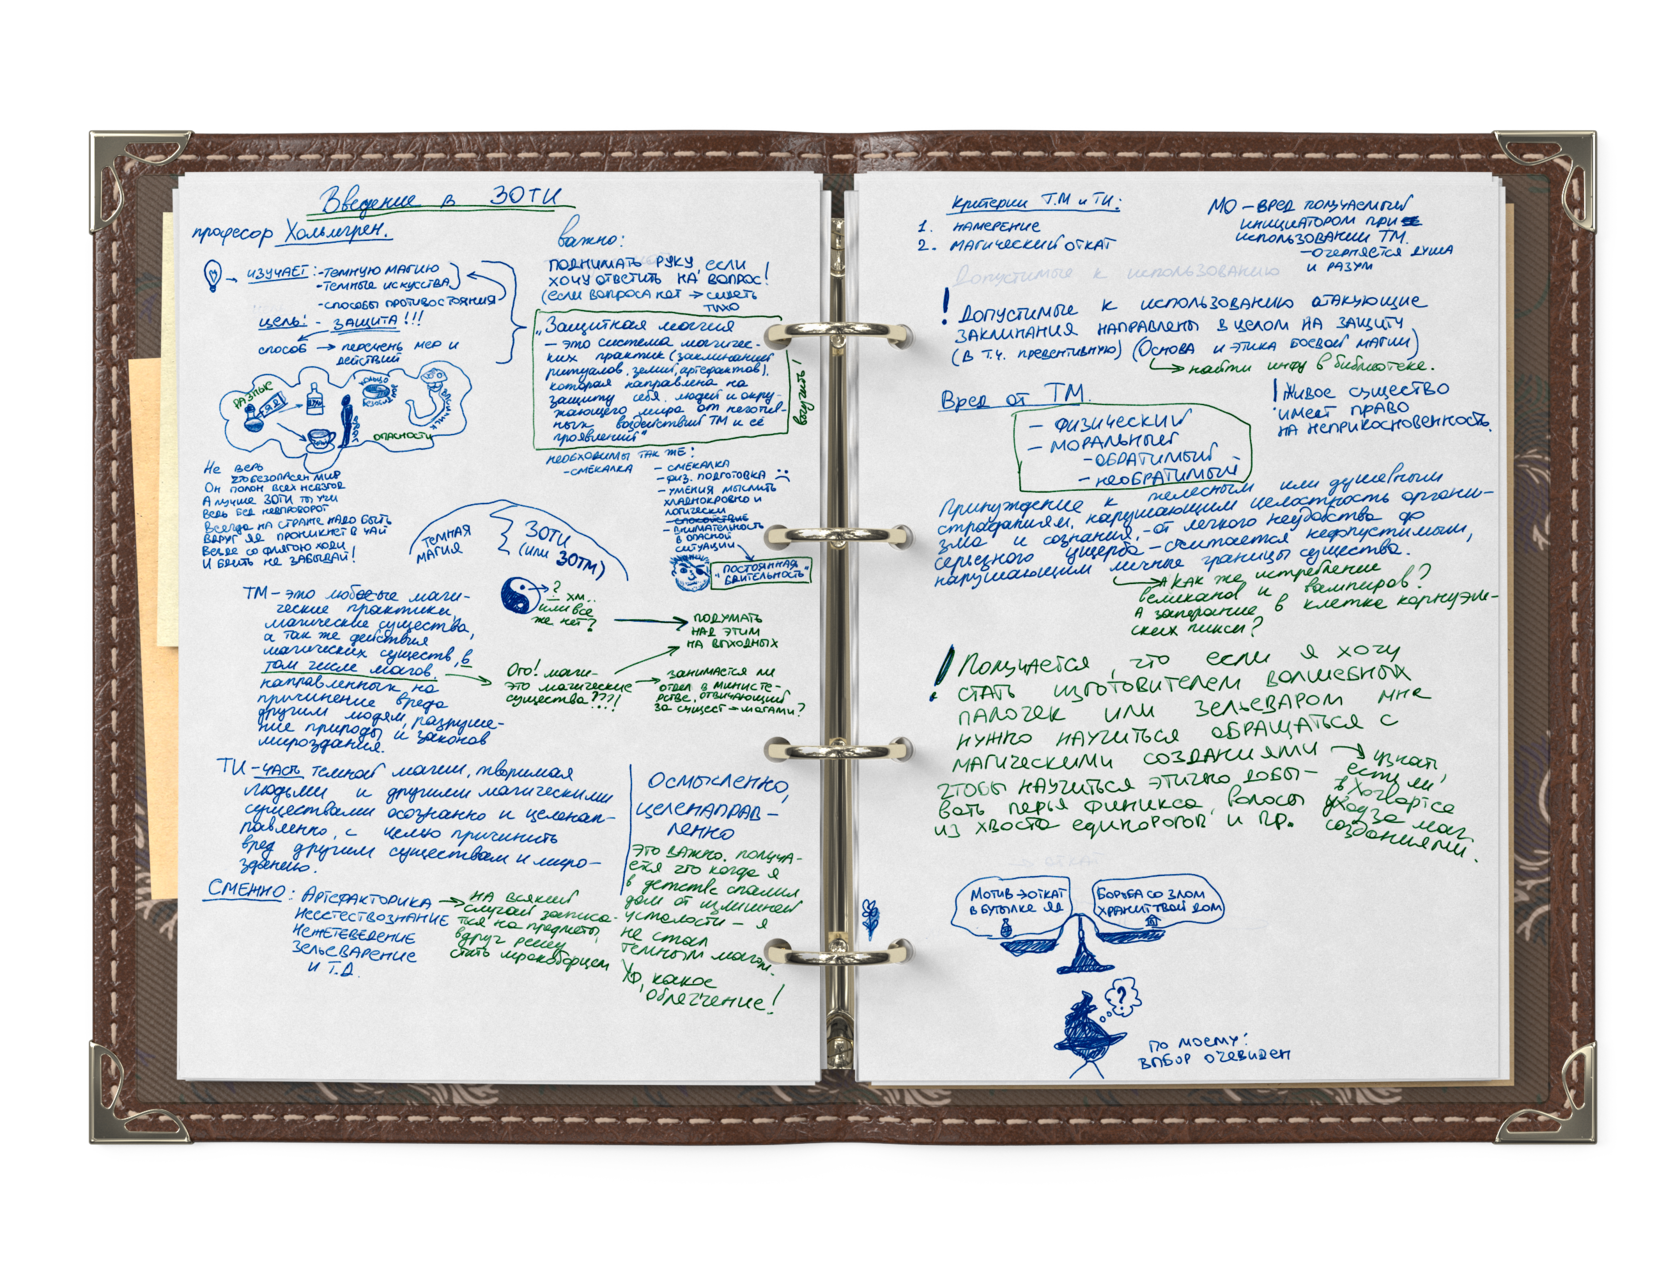 Введение в ЗОТИ
професор Хольмгрен.
изучает: - темную магию
- темные искусства
- способы противостояния
цель: - защита!!!
способ → перечень мер и
действий
РАЗНЫЕ
ЯД!
ЯД
кольцо
ОПАСНОСТИ
Не верь
что безопасен мир
Он полон всех невзгод
А лучше ЗОТИ ты учи
Ведь без невпроворот
Всегда на страже надо быть
Вдруг яд проникнет в чай
Везде со флягою ходи
И бдить не забывай!
важно:
поднимать руку, если
хочу ответить на вопрос!
(если вопроса нет → сидеть
тихо
„Защитная магия
– это система магичес-
ких практик (заклинаний
ритуалов, зелий, артефактов),
которая направлена на
защиту себя, людей и окру-
жающего мира от негатив-
ных воздействий ТМ и её
проявлений"
выучить!
необходимы так же:
- смекалка
- смекалка
- физ. подготовка :(
- умения мыслить
хладнокровно и
логически
- спокойствие
- внимательность
в опасной
ситуации
"постоянная
бдительность"
ТЕМНАЯ
МАГИЯ
ЗОТИ
(или ЗОТМ)
? хм..
или все
же нет?
подумать
над этим
на выходных
ТМ – это любые маги-
ческие практики,
магические существа,
а так же действия
магических существ, в
том числе магов,
направленных на
причинение вреда
другим людям, разруше-
ние природы и законов
мироздания.
Ого! маги –
это магические
существа???!
занимается ли
отдел в министе-
рстве, отвечающий
за сущест – магами?
ТИ – часть темной магии, творимая
людьми и другими магическими
существами осознанно и целенап-
равленно, с целью причинить
вред другим существам и миро-
зданию.
Осмысленно,
целенаправ-
ленно
это важно. получа-
ется что когда я
в детстве спалил
дом от излишней
усталости – я
не стал
темным магом.
Хо, какое
облегчение!
Смежно: Артефакторика
Неестествознание
Нежетеведение
Зельеварение
и т.д.
на всякий
случай записа-
ться на предметы,
вдруг решу
стать мракоборцем
Критерии ТМ и ТИ:
1. намерение
2. магический откат
МО – вред получаемый
инициатором при
использовании ТМ.
– очерняется душа
и разум
Допустимые к использованию
! Допустимые к использованию атакующие
заклинания направлены в целом на защиту
(в т.ч. превентивную) (Основа и этика боевой магии)
найти инфу в библиотеке.
Вред от ТМ.
- физический
- моральный
- обратимый
- необратимый
! Живое существо
имеет право
на неприкосновенность.
Принуждение к телесным или душевным
страданиям, нарушающим целостность органи-
зма и сознания, – от легкого неудобства до
серьезного ущерба – считается недопустимым,
нарушающим личные границы существа.
А как же истребление
великанов и вампиров?
А запирание в клетке корнуэль-
ских пикси?
! Получается, что если я хочу
стать изготовителем волшебных
палочек или зельеваром мне
нужно научиться обращаться с
магическими созданиями
чтобы научиться этично добы-
вать перья феникса, волосы
из хвоста единорогов и пр.
узнать,
есть ли
в Хогвартсе
уход за маг.
созданиями.
Мотив → откат
в бутылке яд
Борьба со злом
хранит твой дом
?
по моему:
выбор очевиден